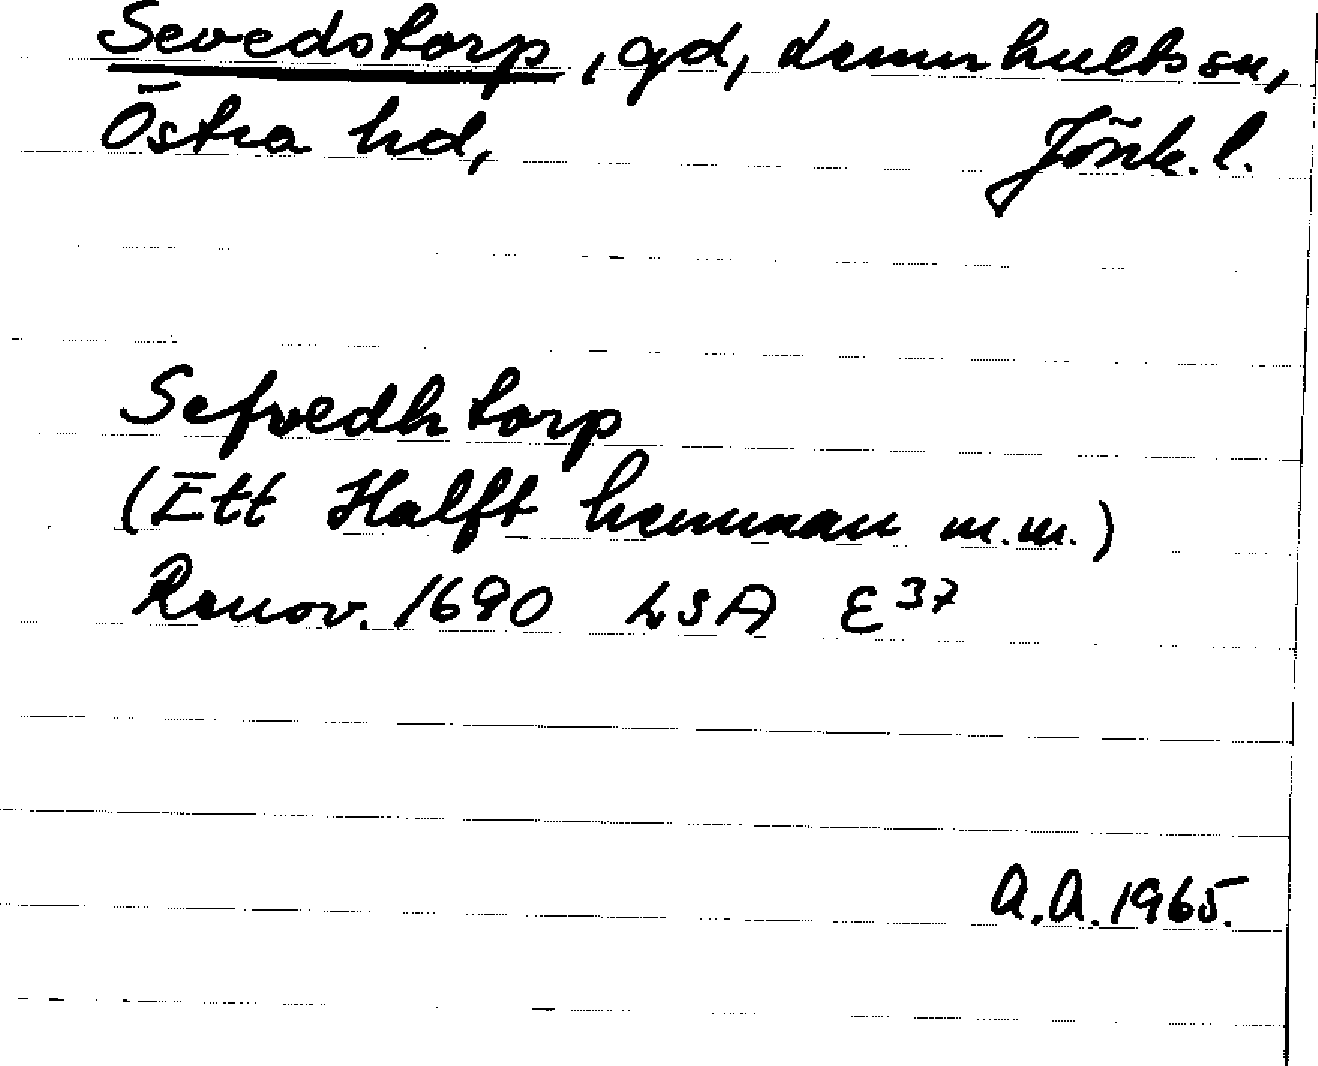 Sevedstorp, gd, Lemnhults sn,
Östra hd, Jönk. l.
Sefvedhtorp
(Ett Halft hemman m.m.)
Renov. 1690 LSA E 37
A.A. 1965.